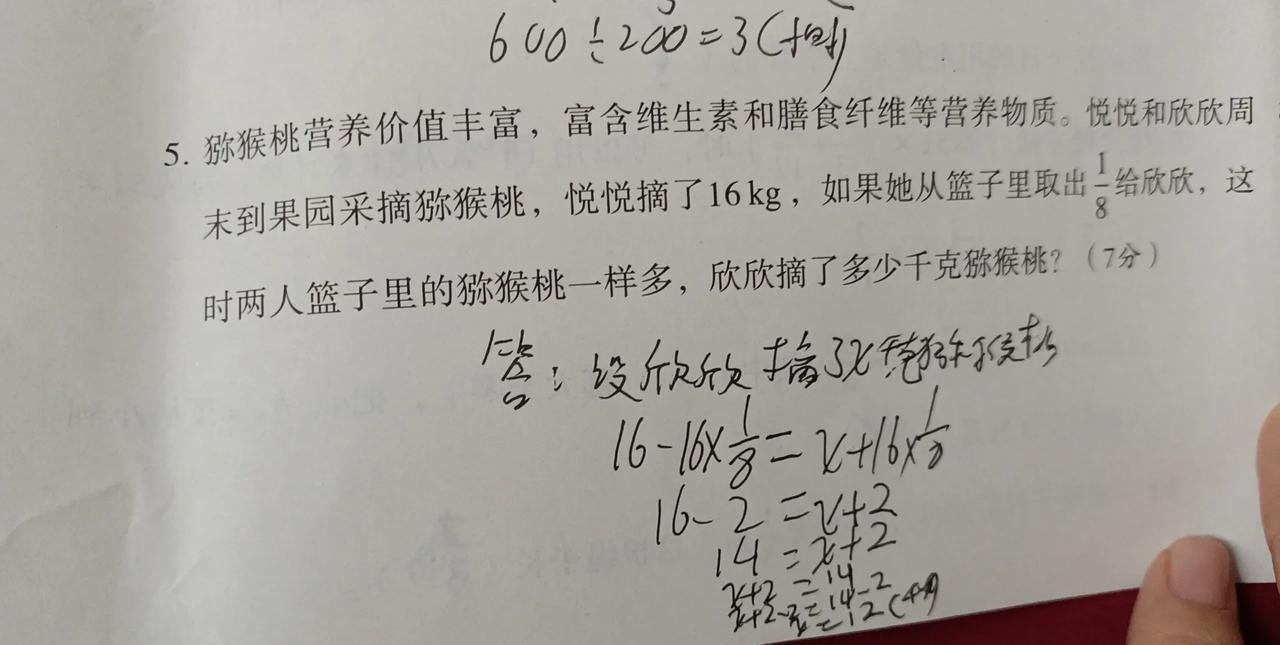 600÷200=3(
5. 猕猴桃营养价值丰富，富含维生素和膳食纤维等营养物质。悦悦和欣欣周
末到果园采摘猕猴桃，悦悦摘了16 kg，如果她从篮子里取出1/8给欣欣，这
时两人篮子里的猕猴桃一样多，欣欣摘了多少千克猕猴桃？（7分）
答：设欣欣摘了x千克猕猴桃
16-16×1/8=x+16×1/8
16-2=x+2
14=x+2
x+2=14
x+2-2=14-2
x=12(